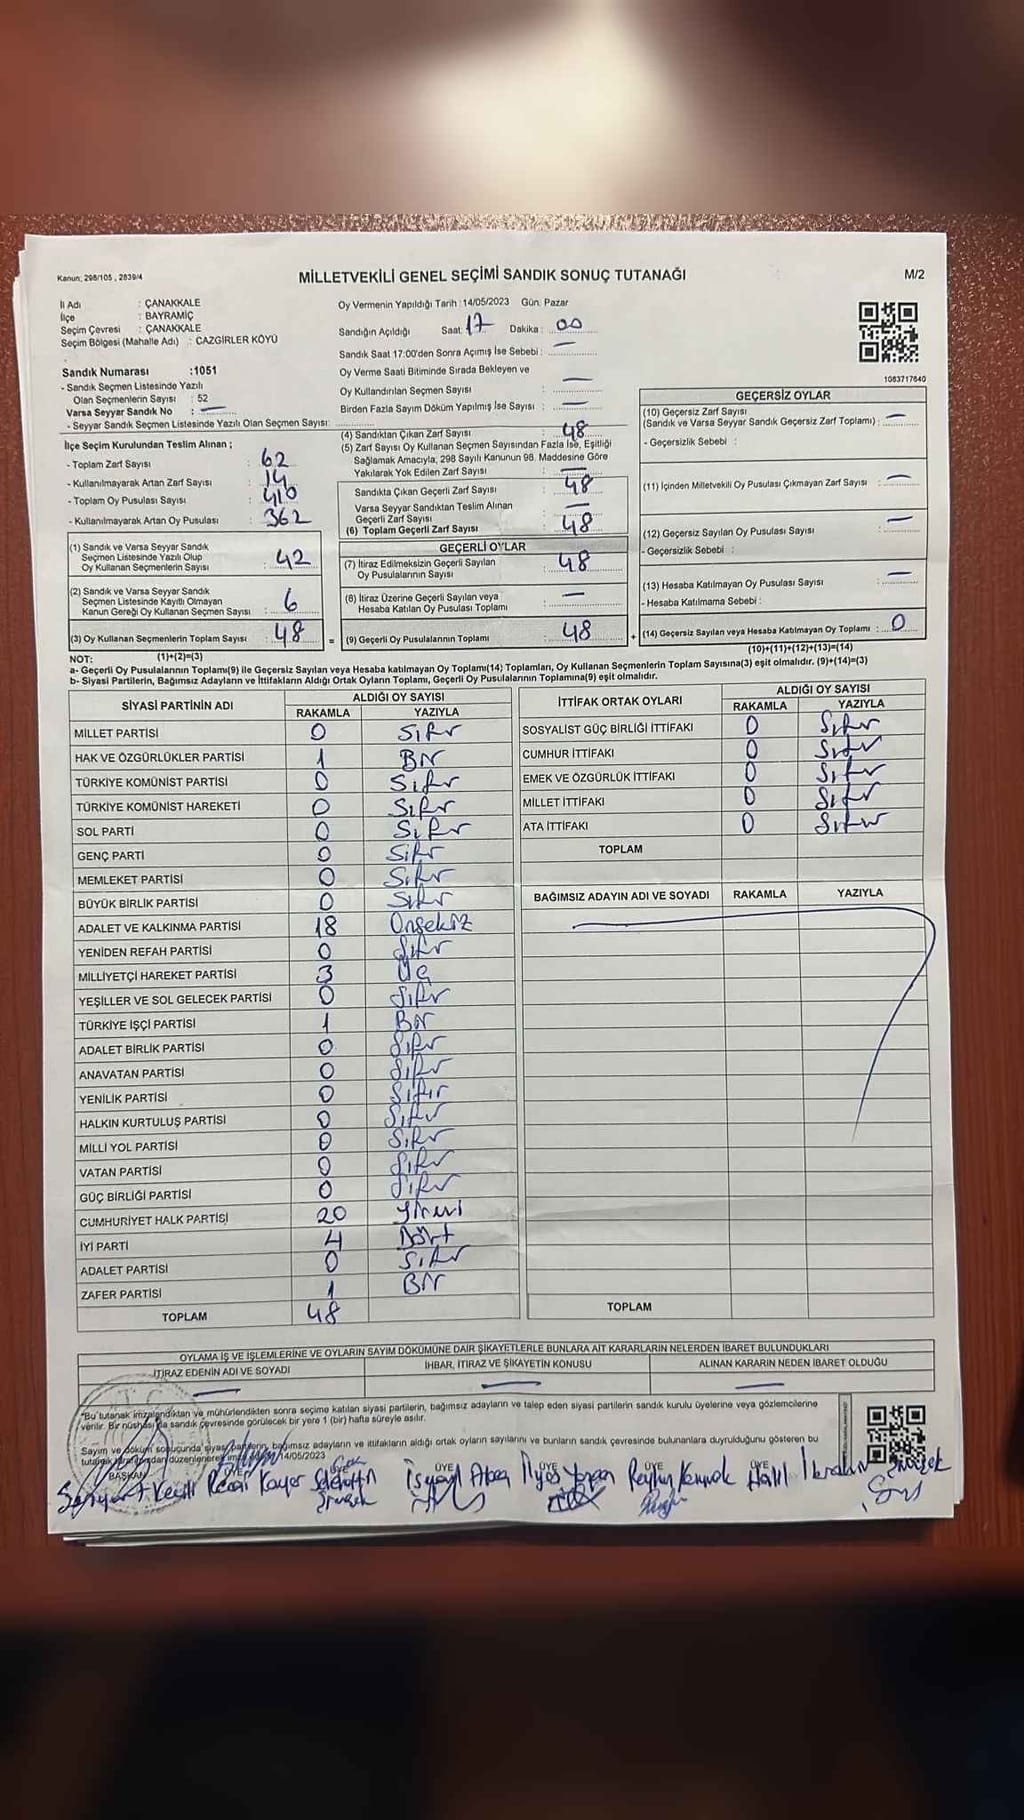 Kanun; 298/105 , 2839/4
MİLLETVEKİLİ GENEL SEÇİMİ SANDIK SONUÇ TUTANAĞI
M/2
İl Adı : ÇANAKKALE
İlçe : BAYRAMİÇ
Seçim Çevresi : ÇANAKKALE
Seçim Bölgesi (Mahalle Adı) : CAZGİRLER KÖYÜ
Oy Vermenin Yapıldığı Tarih :14/05/2023 Gün: Pazar
Sandığın Açıldığı Saat: 17 Dakika : 00
Sandık Saat 17:00'den Sonra Açımış İse Sebebi : —
Oy Verme Saati Bitiminde Sırada Bekleyen ve
Oy Kullandırılan Seçmen Sayısı : —
Birden Fazla Sayım Döküm Yapılmış İse Sayısı : —
1083717640
Sandık Numarası :1051
- Sandık Seçmen Listesinde Yazılı
Olan Seçmenlerin Sayısı : 52
Varsa Seyyar Sandık No : —
- Seyyar Sandık Seçmen Listesinde Yazılı Olan Seçmen Sayısı:
İlçe Seçim Kurulundan Teslim Alınan ;
- Toplam Zarf Sayısı : 62
- Kullanılmayarak Artan Zarf Sayısı : 14
- Toplam Oy Pusulası Sayısı : 410
- Kullanılmayarak Artan Oy Pusulası : 362
(1) Sandık ve Varsa Seyyar Sandık
Seçmen Listesinde Yazılı Olup
Oy Kullanan Seçmenlerin Sayısı : 42
(2) Sandık ve Varsa Seyyar Sandık
Seçmen Listesinde Kayıtlı Olmayan
Kanun Gereği Oy Kullanan Seçmen Sayısı : 6
(3) Oy Kullanan Seçmenlerin Toplam Sayısı : 48
(4) Sandıktan Çıkan Zarf Sayısı : 48
(5) Zarf Sayısı Oy Kullanan Seçmen Sayısından Fazla İse, Eşitliği
Sağlamak Amacıyla, 298 Sayılı Kanunun 98. Maddesine Göre
Yakılarak Yok Edilen Zarf Sayısı : —
Sandıkta Çıkan Geçerli Zarf Sayısı : 48
Varsa Seyyar Sandıktan Teslim Alınan
Geçerli Zarf Sayısı : —
(6) Toplam Geçerli Zarf Sayısı : 48
GEÇERLİ OYLAR
(7) İtiraz Edilmeksizin Geçerli Sayılan
Oy Pusulalarının Sayısı : 48
(8) İtiraz Üzerine Geçerli Sayılan veya
Hesaba Katılan Oy Pusulası Toplamı : —
= (9) Geçerli Oy Pusulalarının Toplamı : 48
GEÇERSİZ OYLAR
(10) Geçersiz Zarf Sayısı
(Sandık ve Varsa Seyyar Sandık Geçersiz Zarf Toplamı) : —
- Geçersizlik Sebebi :
(11) İçinden Milletvekili Oy Pusulası Çıkmayan Zarf Sayısı : —
(12) Geçersiz Sayılan Oy Pusulası Sayısı : —
- Geçersizlik Sebebi :
(13) Hesaba Katılmayan Oy Pusulası Sayısı : —
- Hesaba Katılmama Sebebi :
+ (14) Geçersiz Sayılan veya Hesaba Katılmayan Oy Toplamı : 0
NOT: (1)+(2)=(3)
(10)+(11)+(12)+(13)=(14)
a- Geçerli Oy Pusulalarının Toplamı(9) ile Geçersiz Sayılan veya Hesaba katılmayan Oy Toplamı(14) Toplamları, Oy Kullanan Seçmenlerin Toplam Sayısına(3) eşit olmalıdır. (9)+(14)=(3)
b- Siyasi Partilerin, Bağımsız Adayların ve İttifakların Aldığı Ortak Oyların Toplamı, Geçerli Oy Pusulalarının Toplamına(9) eşit olmalıdır.
SİYASİ PARTİNİN ADI ALDIĞI OY SAYISI
RAKAMLA YAZIYLA
MİLLET PARTİSİ 0 Sıfır
HAK VE ÖZGÜRLÜKLER PARTİSİ 1 Bir
TÜRKİYE KOMÜNİST PARTİSİ 0 Sıfır
TÜRKİYE KOMÜNİST HAREKETİ 0 Sıfır
SOL PARTİ 0 Sıfır
GENÇ PARTİ 0 Sıfır
MEMLEKET PARTİSİ 0 Sıfır
BÜYÜK BİRLİK PARTİSİ 0 Sıfır
ADALET VE KALKINMA PARTİSİ 18 Onsekiz
YENİDEN REFAH PARTİSİ 0 Sıfır
MİLLİYETÇİ HAREKET PARTİSİ 3 Üç
YEŞİLLER VE SOL GELECEK PARTİSİ 0 Sıfır
TÜRKİYE İŞÇİ PARTİSİ 1 Bir
ADALET BİRLİK PARTİSİ 0 Sıfır
ANAVATAN PARTİSİ 0 Sıfır
YENİLİK PARTİSİ 0 Sıfır
HALKIN KURTULUŞ PARTİSİ 0 Sıfır
MİLLİ YOL PARTİSİ 0 Sıfır
VATAN PARTİSİ 0 Sıfır
GÜÇ BİRLİĞİ PARTİSİ 0 Sıfır
CUMHURİYET HALK PARTİSİ 20 Yirmi
İYİ PARTİ 4 Dört
ADALET PARTİSİ 0 Sıfır
ZAFER PARTİSİ 1 Bir
TOPLAM 48
İTTİFAK ORTAK OYLARI ALDIĞI OY SAYISI
RAKAMLA YAZIYLA
SOSYALİST GÜÇ BİRLİĞİ İTTİFAKI 0 Sıfır
CUMHUR İTTİFAKI 0 Sıfır
EMEK VE ÖZGÜRLÜK İTTİFAKI 0 Sıfır
MİLLET İTTİFAKI 0 Sıfır
ATA İTTİFAKI 0 Sıfır
TOPLAM
BAĞIMSIZ ADAYIN ADI VE SOYADI RAKAMLA YAZIYLA
TOPLAM
OYLAMA İŞ VE İŞLEMLERİNE VE OYLARIN SAYIM DÖKÜMÜNE DAİR ŞİKAYETLERLE BUNLARA AİT KARARLARIN NELERDEN İBARET BULUNDUKLARI
İTİRAZ EDENİN ADI VE SOYADI İHBAR, İTİRAZ VE ŞİKAYETİN KONUSU ALINAN KARARIN NEDEN İBARET OLDUĞU
— — —
"Bu tutanak imzalandıktan ve mühürlendikten sonra seçime katılan siyasi partilerin, bağımsız adayların ve talep eden siyasi partilerin sandık kurulu üyelerine veya gözlemcilerine
verilir. Bir nüshası da sandık çevresinde görülecek bir yere 1 (bir) hafta süreyle asılır.
Sayım ve döküm sonucunda siyasi partilerin, bağımsız adayların ve ittifakların aldığı ortak oyların sayılarını ve bunların sandık çevresinde bulunanlara duyrulduğunu gösteren bu
14/05/2023
BAŞKAN ÜYE ÜYE ÜYE ÜYE ÜYE ÜYE
Kayar Selahattin İlyas Halil İbrahim